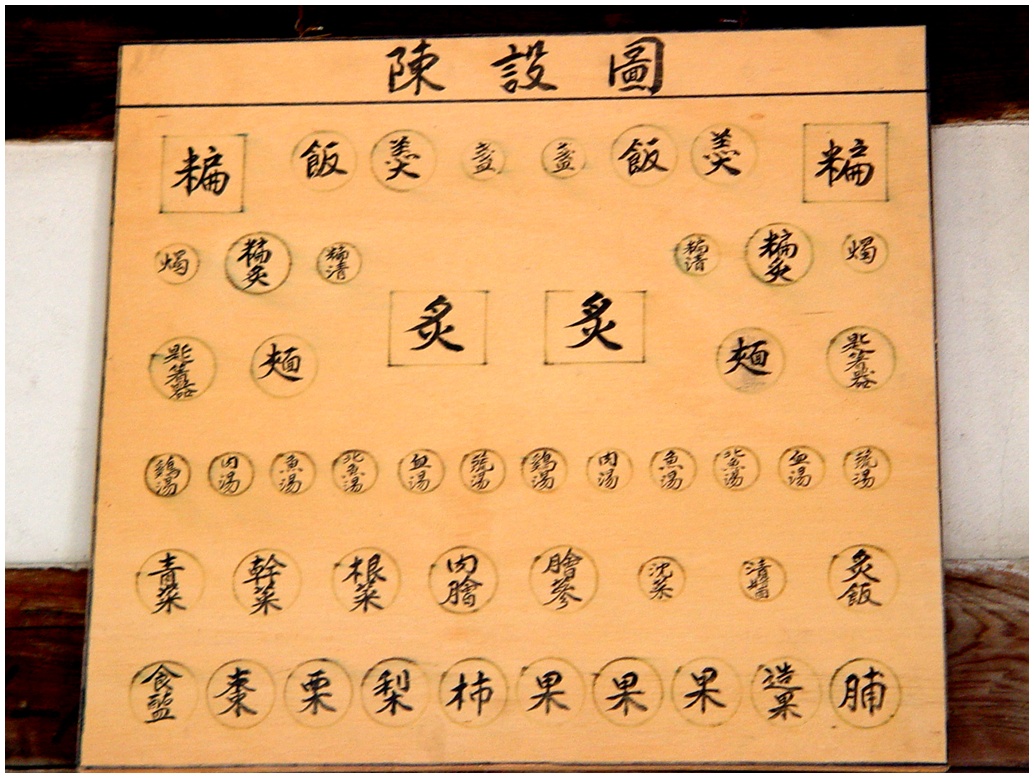 陳設圖
糄 飯 羹 盞 盞 飯 羹 糄
燭 糄炙 糄清 糄清 糄炙 燭
炙 炙
匙箸器 麵 麵 匙箸器
鷄湯 肉湯 魚湯 北魚湯 血湯 蔬湯 鷄湯 肉湯 魚湯 北魚湯 血湯 蔬湯
青菜 幹菜 根菜 肉膾 膾蔘 沈菜 清醬 炙飯
食鹽 棗 栗 梨 柿 果 果 果 造果 脯